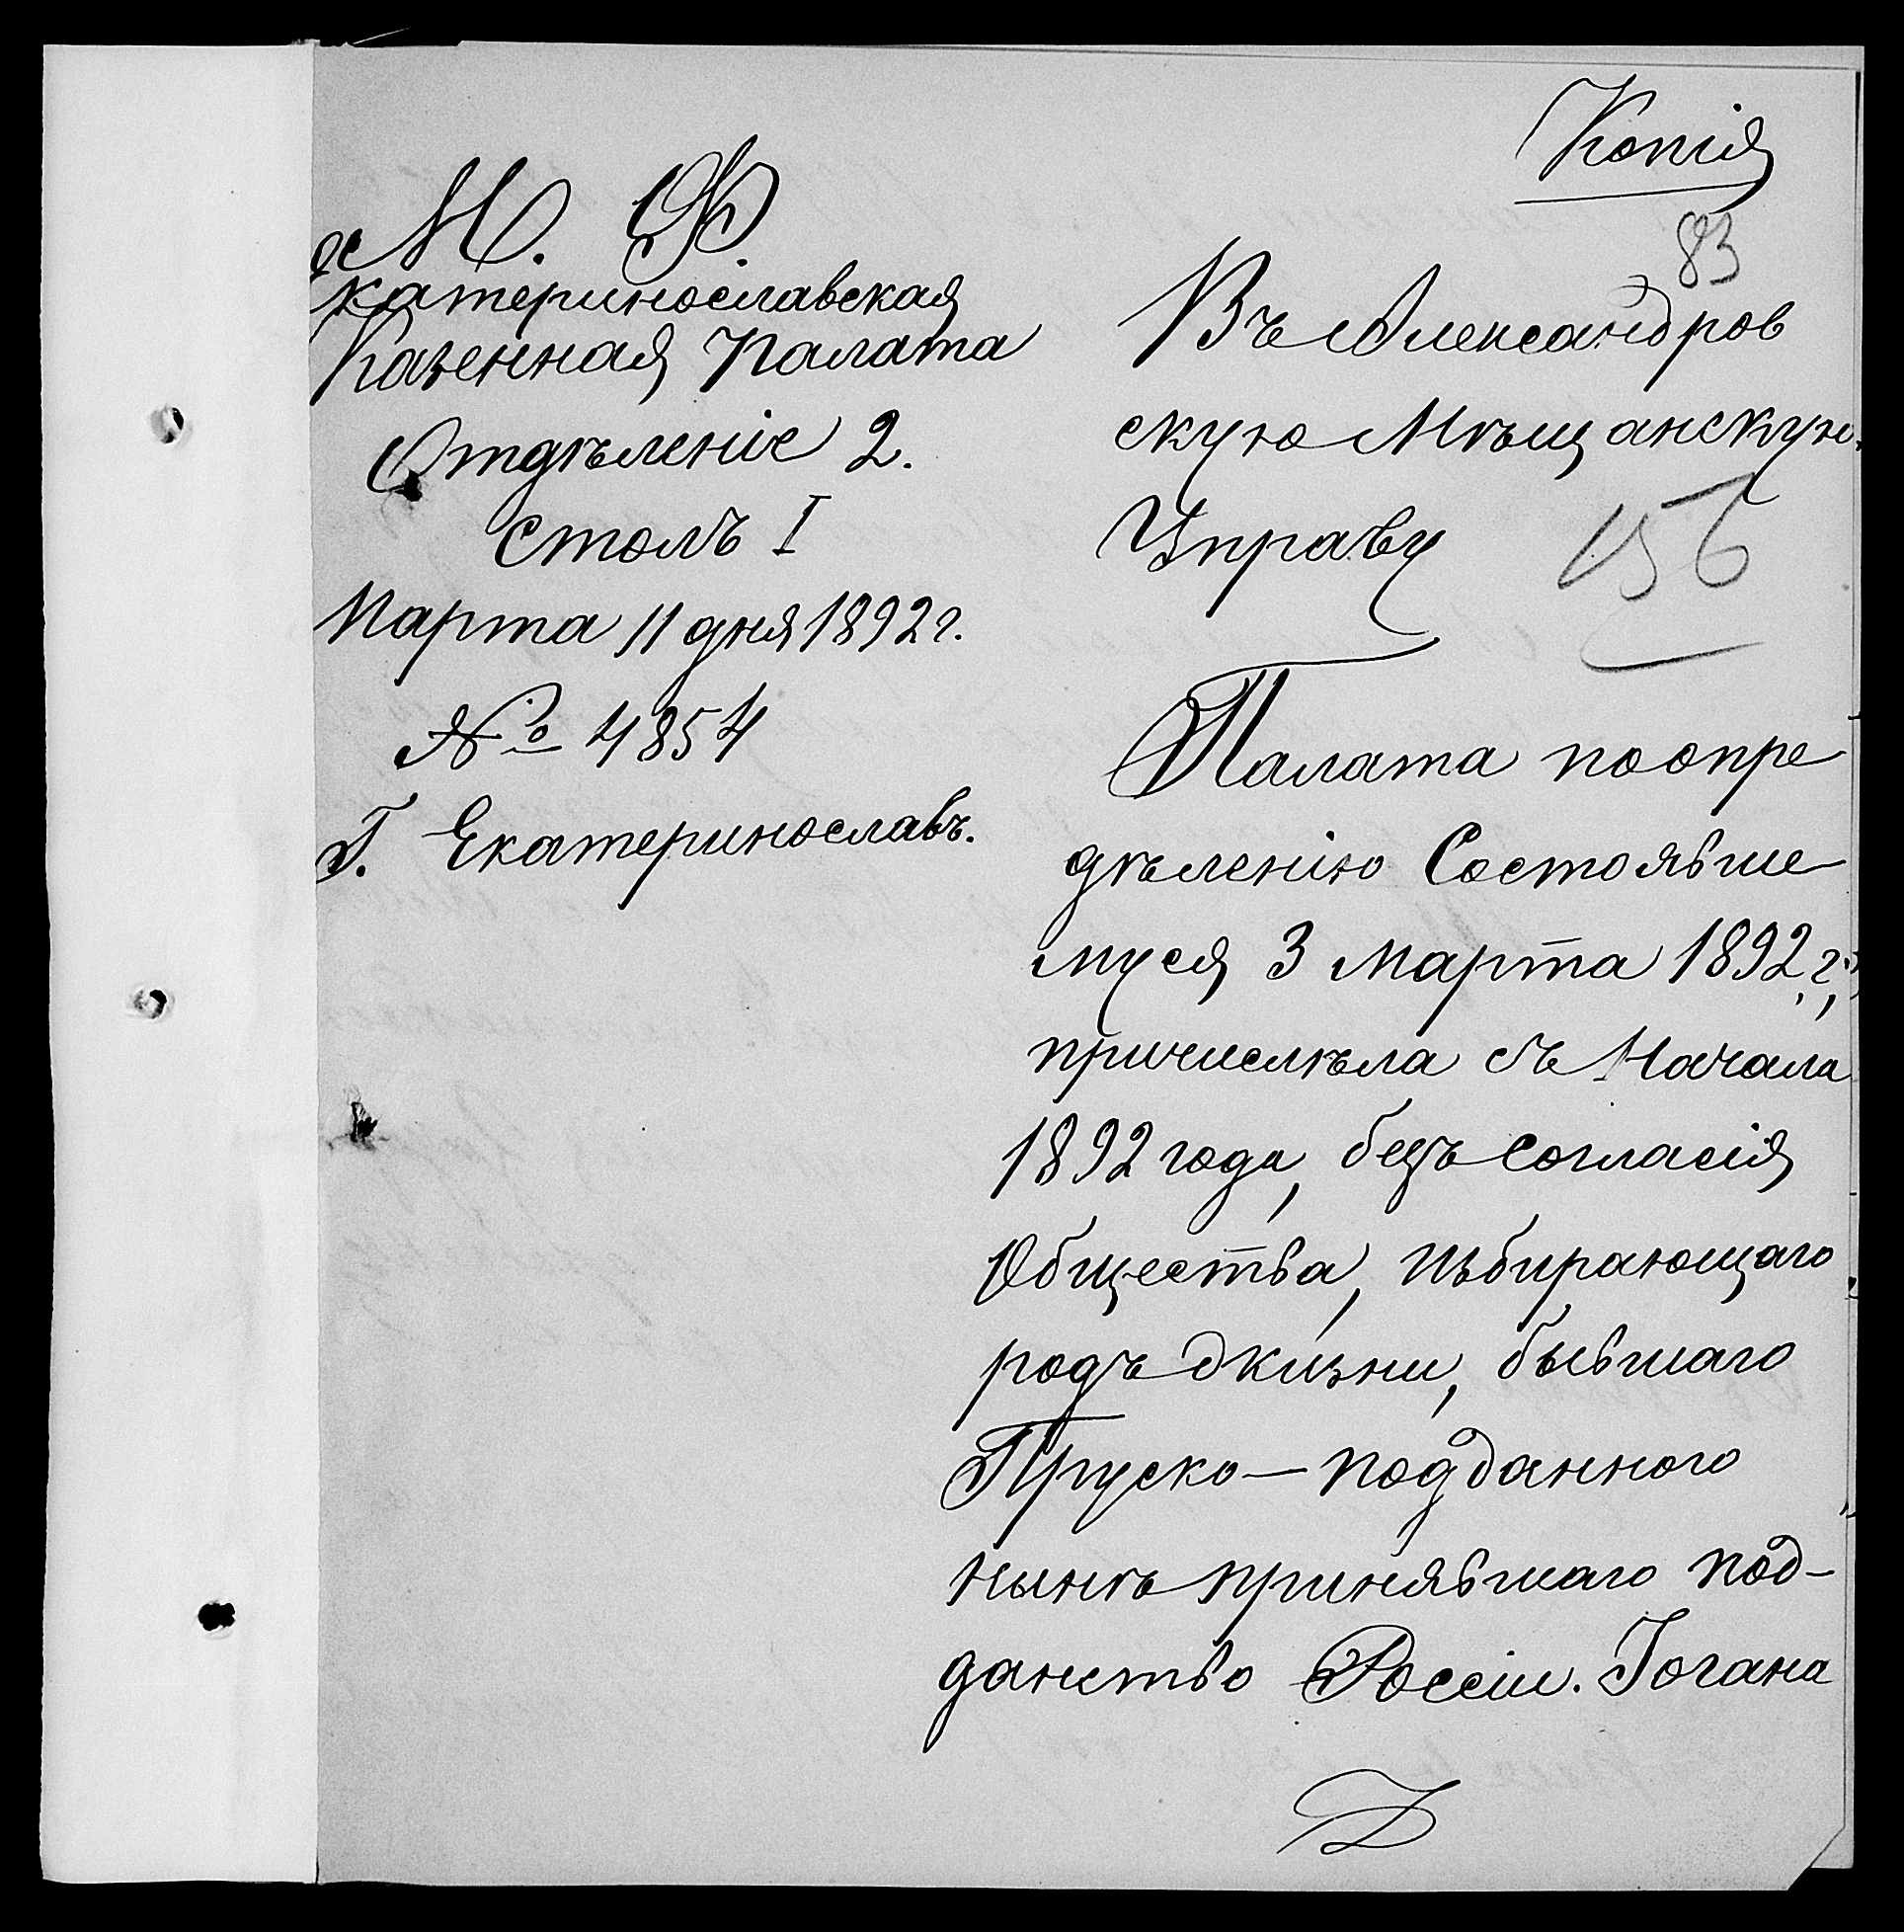 Копія
83
М. Ф.
Екатеринославская
Казенная Палата
Отдѣленіе 2.
Столъ I
Марта 11 дня 1892 г.
№ 4854
Г. Екатеринославъ.
Въ Александров
скую Мѣщанскую
Управу
156
Палата по опре
дѣленію Состоявше
муся 3 Марта 1892 г.,
причислѣла съ Начала
1892 года, безъ Согласія
Общества, избирающаго
родъ жизни, бывшаго
Пруско-подданного
нынѣ принявшаго под-
данство Россіи. Іогана